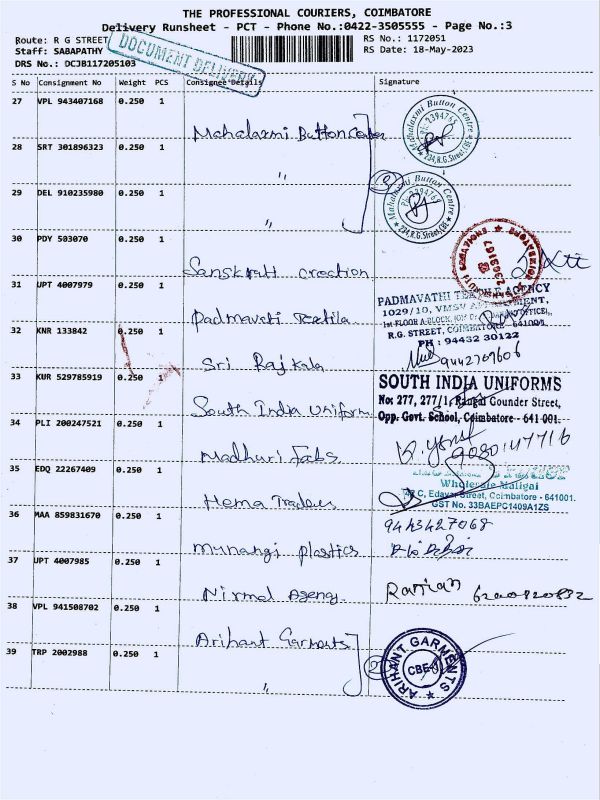 THE PROFESSIONAL COURIERS, COIMBATORE
Delivery Runsheet - PCT - Phone No.:0422-3505555 - Page No.:3
Route: R G STREET
RS No.: 1172051
Staff: SABAPATHY
RS Date: 18-May-2023
DRS No.: DCJB117205103
DOCUMENT DELIVERY
S No Consignment No Weight PCS Consignee Details Signature
27 VPL 943407168 0.250 1 Mahalaxmi Button Center
Mahalaxmi Button Centre
PH: 2394769
★ 234, R.G. Street, CBE ★
28 SRT 301896323 0.250 1 "
29 DEL 910235980 0.250 1 "
Mahalaxmi Button Centre
PH: 2394769
★ 234, R.G. Street, CBE ★
30 PDY 503070 0.250 1 Sanskruti creation
31 UPT 4007979 0.250 1 Padmavati Textila
PADMAVATHI TEXTILE AGENCY
R.G. STREET, COIMBATORE - 641001.
PH : 94432 30122
32 KNR 133842 0.250 1 Sri Rajkala
9442707606
33 KUR 529785919 0.250 1 South India Uniform
SOUTH INDIA UNIFORMS
No: 277, 277/1, Rangai Gounder Street,
Opp. Govt. School, Coimbatore - 641 001.
34 PLI 200247521 0.250 1 Madhuri Fabs
35 EDQ 22267409 0.250 1 Hema Traders
Wholesale Maligai
C, Edayar Street, Coimbatore - 641001.
GST No. 33BAEPC1409A1ZS
36 MAA 859831670 0.250 1 Munangi plastics
9443427068
37 UPT 4007985 0.250 1 Nirmal Ageny.
38 VPL 941508702 0.250 1 Arihant Garments
39 TRP 2002988 0.250 1 "
2
ARIHANT GARMENTS
CBE-1